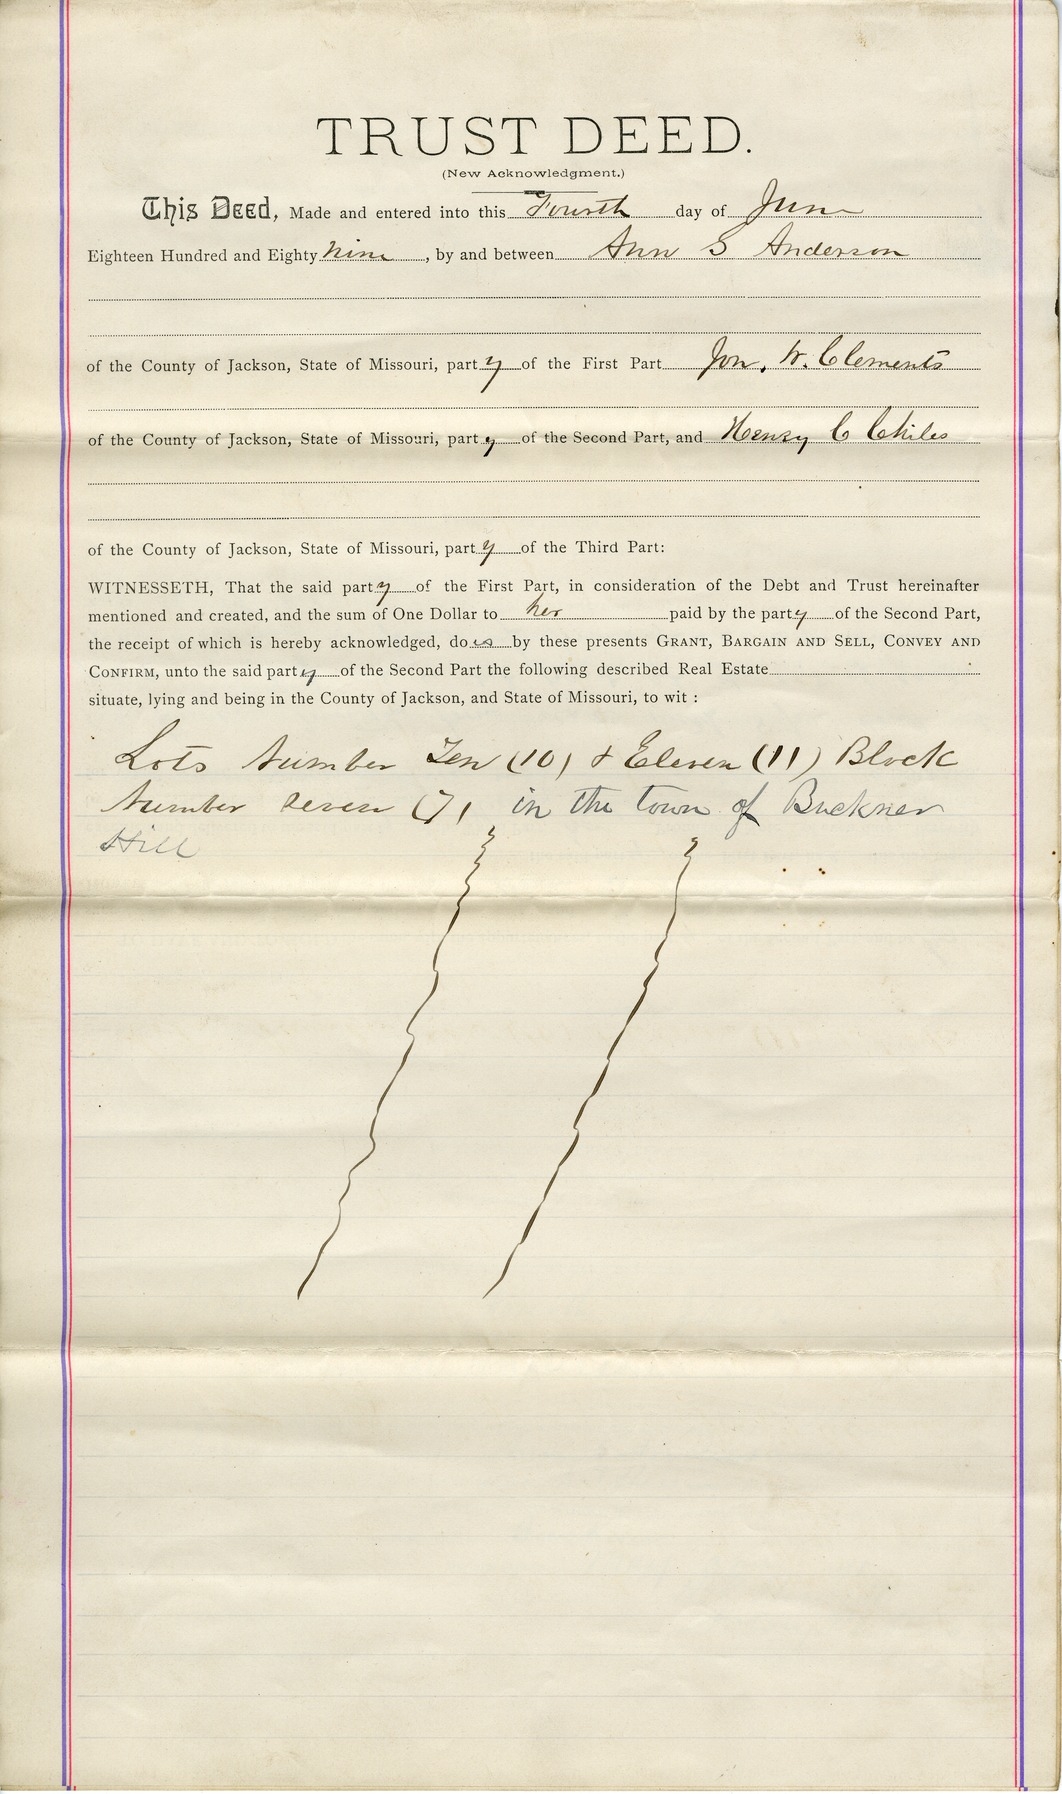 TRUST DEED.
(New Acknowledgment.)
This Deed, Made and entered into this Fourth day of June
Eighteen Hundred and Eighty nine, by and between Ann S Anderson
of the County of Jackson, State of Missouri, party of the First Part Jon. W. Clements
of the County of Jackson, State of Missouri, party of the Second Part, and Henry C Chiles
of the County of Jackson, State of Missouri, party of the Third Part:
WITNESSETH, That the said party of the First Part, in consideration of the Debt and Trust hereinafter
mentioned and created, and the sum of One Dollar to her paid by the party of the Second Part,
the receipt of which is hereby acknowledged, does by these presents GRANT, BARGAIN AND SELL, CONVEY AND
CONFIRM, unto the said party of the Second Part the following described Real Estate
situate, lying and being in the County of Jackson, and State of Missouri, to wit :
Lots Number Ten (10) & Eleven (11) Block
Number seven (7) in the town of Buckner
Hill